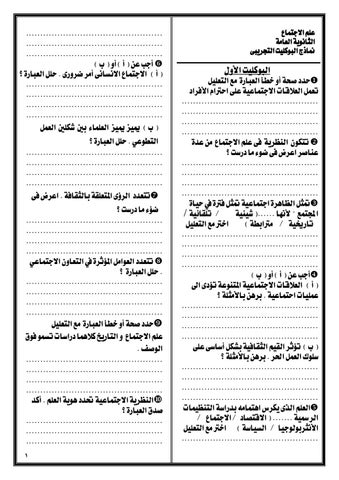 علم الاجتماع
الثانوية العامة
نماذج البوكليت التجريبى
البوكليت الأول
❶ حدد صحة أو خطأ العبارة مع التعليل
تعمل العلاقات الاجتماعية على احترام الأفراد
❷ تتكون النظرية فى علم الاجتماع من عدة
عناصر اعرض فى ضوء ما درست ؟
❸ تمثل الظاهرة اجتماعية تمثل فترة في حياة
المجتمع " لأنها ......( شيئية / تلقائية /
تاريخية / مترابطة ) اختر مع التعليل
❹ أجب عن ( أ ) أو ( ب )
( أ ) العلاقات الاجتماعية المتنوعة تؤدى الى
عمليات اجتماعية . برهن بالأمثلة ؟
( ب ) تؤثر القيم الثقافية بشكل أساسى على
سلوك العمل الحر . برهن بالأمثلة ؟
❺ العلم الذى يكرس اهتمامه بدراسة التنظيمات
الرسمية ....... ( الاقتصاد / الاجتماع /
الأنثربولوجيا / السياسة ) اختر مع التعليل
❻ أجب عن ( أ ) أو ( ب )
( أ ) الاجتماع الانسانى أمر ضرورى . حلل العبارة ؟
( ب ) يميز يميز العلماء بين شكلين العمل
التطوعي . حلل العبارة ؟
❼ تتعدد الرؤى المتعلقة بالثقافة . اعرض فى
ضوء ما درست ؟
❽ تتعدد العوامل المؤثرة في التعاون الاجتماعي
. حلل العبارة ؟
❾ حدد صحة أو خطأ العبارة مع التعليل
علم الاجتماع و التاريخ كلاهما دراسات تسمو فوق
الوصف .
❿ النظرية الاجتماعية تحدد هوية العلم . أكد
صدق العبارة ؟
١